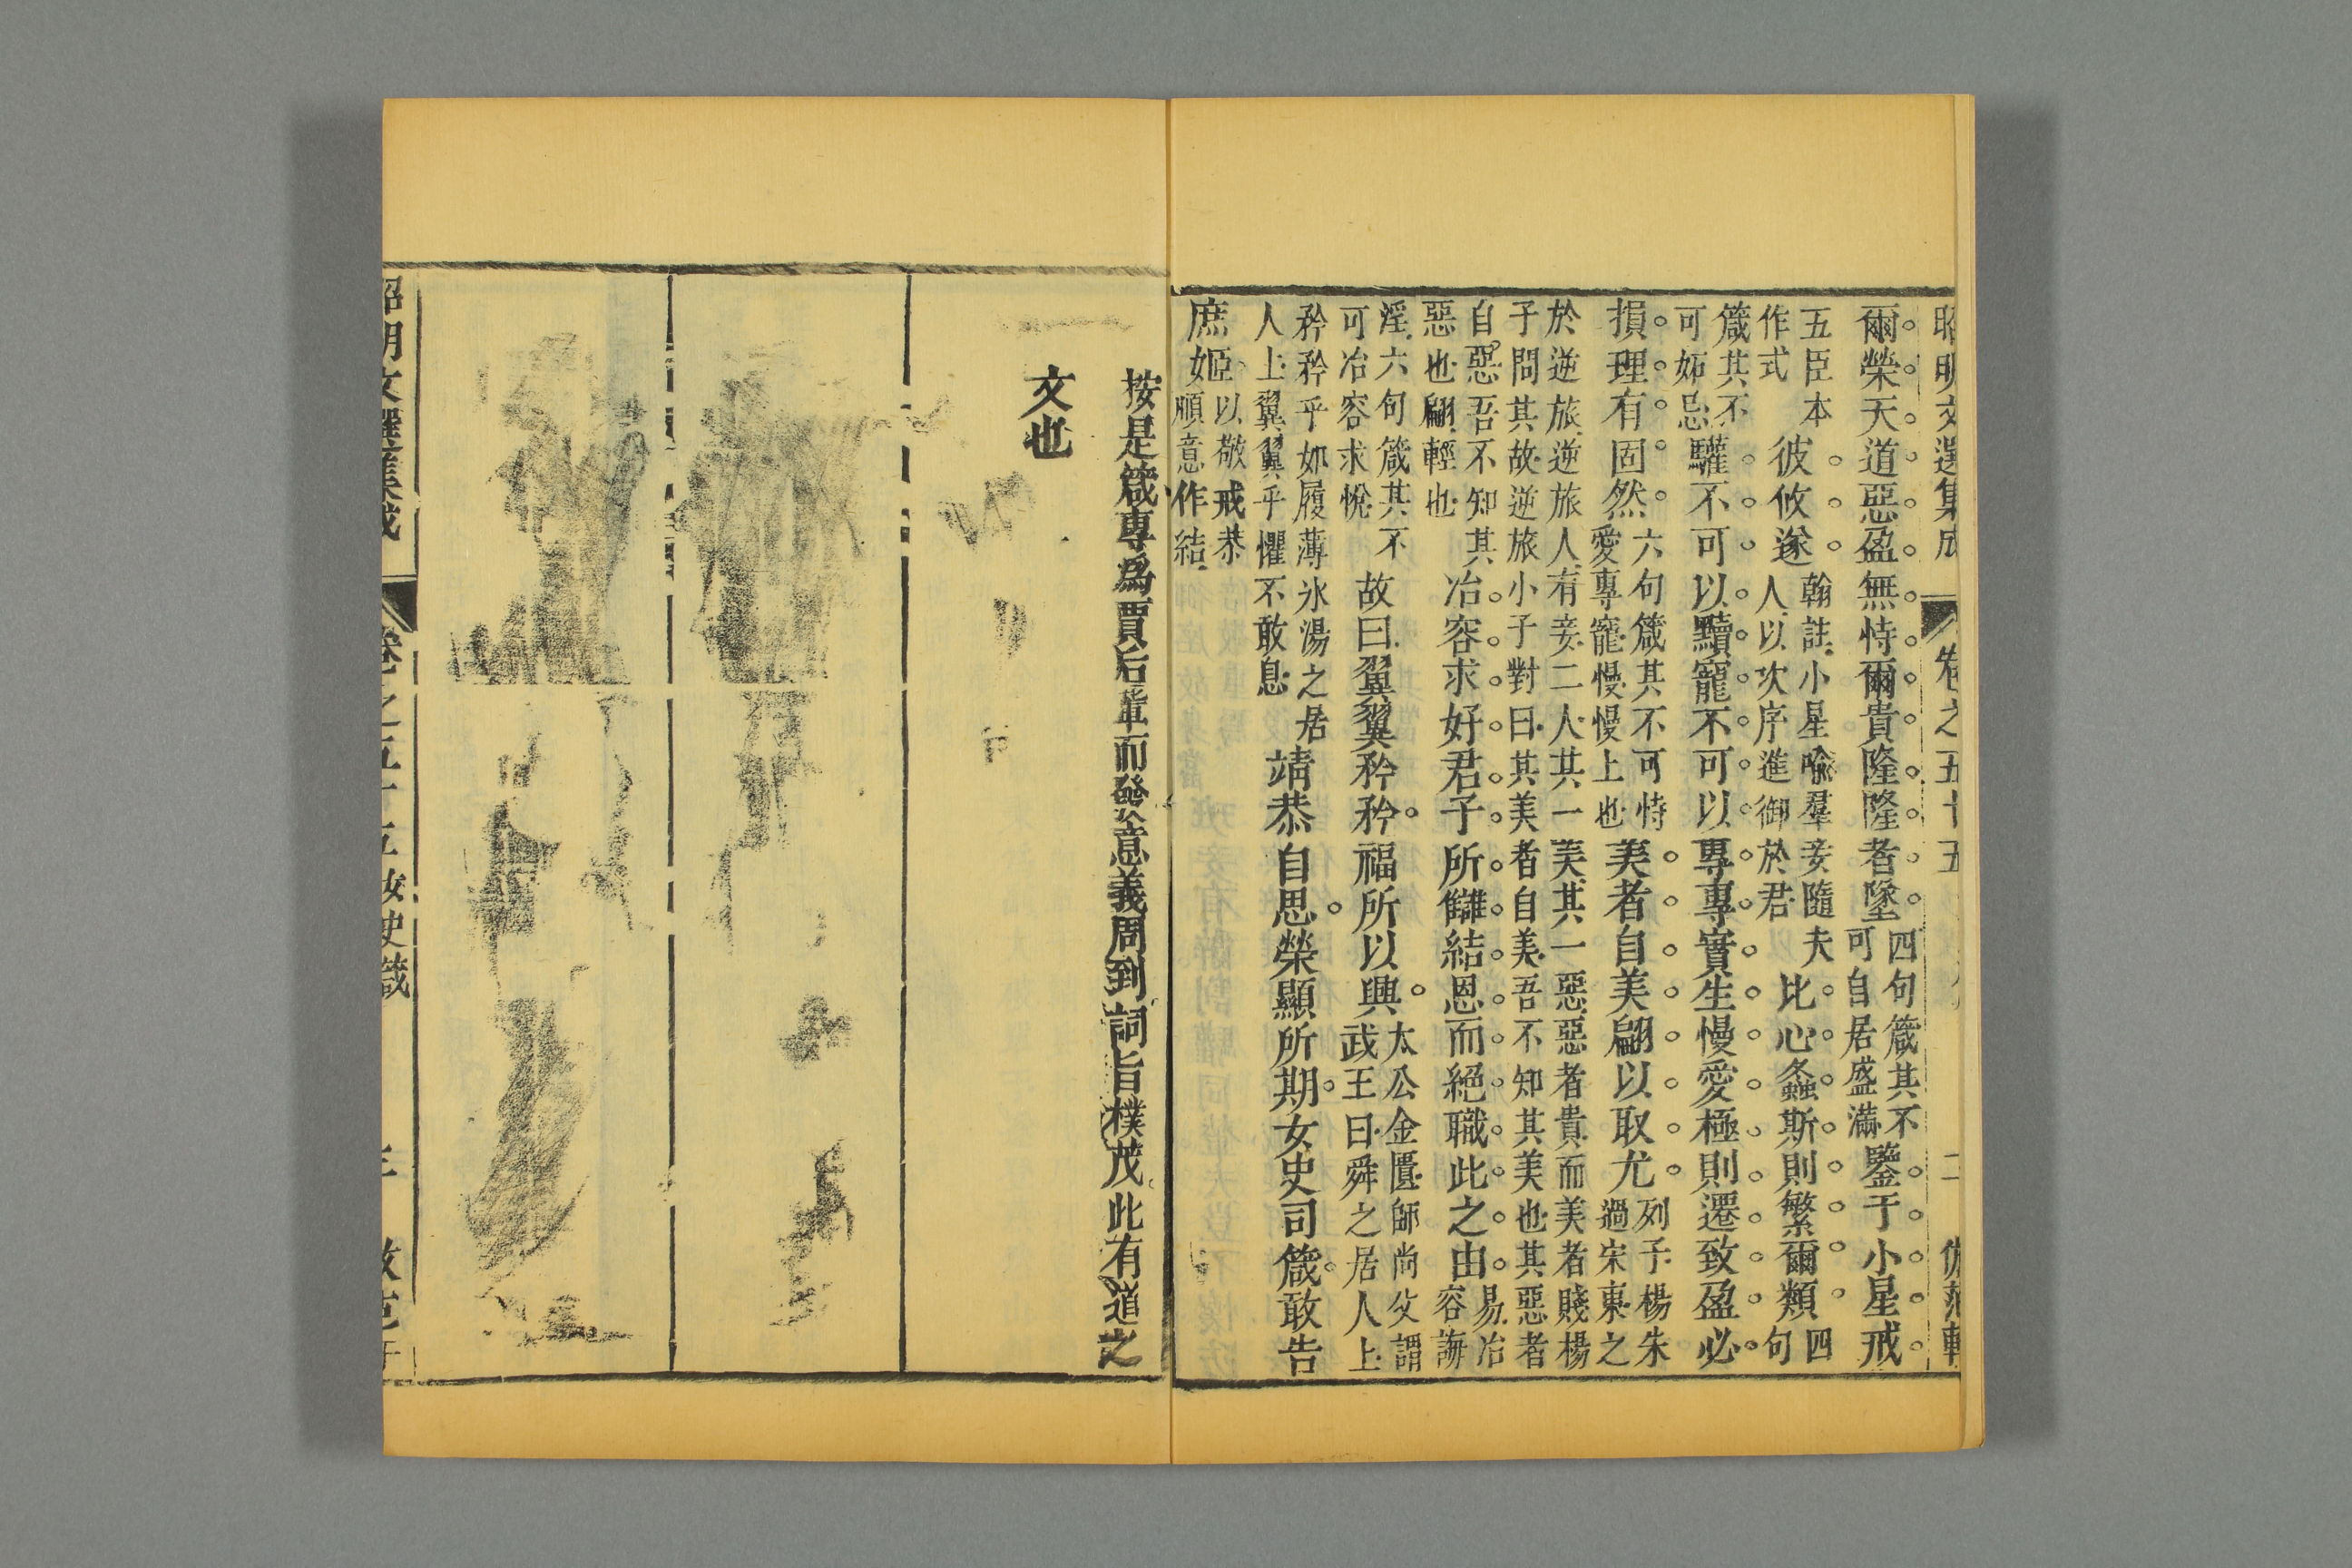 昭明文選集成 卷之五十五 二
爾榮天道惡盈無恃爾貴隆隆者墜四句箴其不可自居盛滿鑒于小星戒
五臣本作式彼攸遂翰註小星喻羣妾隨夫人以次序進御於君比心螽斯則繁爾類四句
箴其不可妬忌驩不可以黷寵不可以專專實生慢愛極則遷致盈必
損理有固然六句箴其不可恃愛專寵慢慢上也美者自美翩以取尤列子楊朱過宋東之
於逆旅逆旅人有妾二人其一美其一惡惡者貴而美者賤楊
子問其故逆旅小子對曰其美者自美吾不知其美也其惡者
自惡吾不知其惡也翩輕也冶容求好君子所讎結恩而絕職此之由易冶容誨
淫六句箴其不可冶容求悅故曰翼翼矜矜福所以興太公金匱師尚父謂武王曰舜之居人上
矜矜乎如履薄氷湯之居人上翼翼乎懼不敢息靖恭自思榮顯所期女史司箴敢告
庶姬以敬戒恭順意作結
按是箴專為賈后輩而發意義周到詞旨樸茂此有道之
文也
昭明文選集成 卷之五十五 女史箴 三